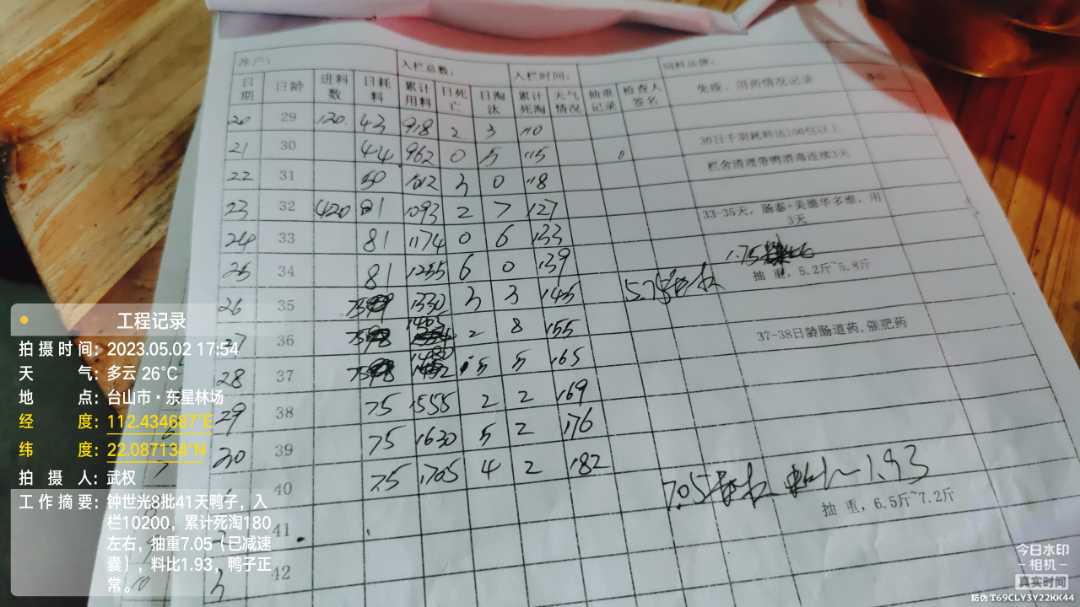 养户: 入栏总数: 入栏时间: 饲料品牌:
日期 日龄 进料数 日耗料 累计用料 日死亡 日淘汰 累计死淘 天气情况 抽重记录 检查人签名 免疫、用药情况记录 备注
20 29 120. 43 918 2 3 110
21 30 44 962 0 5 115 30日千羽耗料达100包以上
栏舍清理带鸭消毒连续3天
22 31 50 1012 3 0 118
23 32 420 81 1093 2 7 127 33-35天,肠泰+美德华多维,用
3天
24 33 81 1174 0 6 133
1.75
25 34 81 1255 6 0 139 抽 重,5.2斤~5.8斤
26 35 75 1330 3 3 145 5.75
36 2 8 155 37-38日龄肠道药,催肥药
28 37 75 5 5 165
29 38 75 1555 2 2 169
30 39 75 1630 5 2 176
40 75 1705 4 2 182 7.05 1.93
抽 重,6.5斤~7.2斤
41
42
工程记录
拍摄时间:2023.05.02 17:54
天 气:多云 26°C
地 点:台山市·东星林场
经 度:112.434687°E
纬 度:22.087134°N
拍 摄 人:武权
工作摘要:钟世光8批41天鸭子,入
栏10200,累计死淘180
左右,抽重7.05(已减速
囊),料比1.93,鸭子正
常。
今日水印
相机
真实时间
防伪 T69CLY3Y22KK44